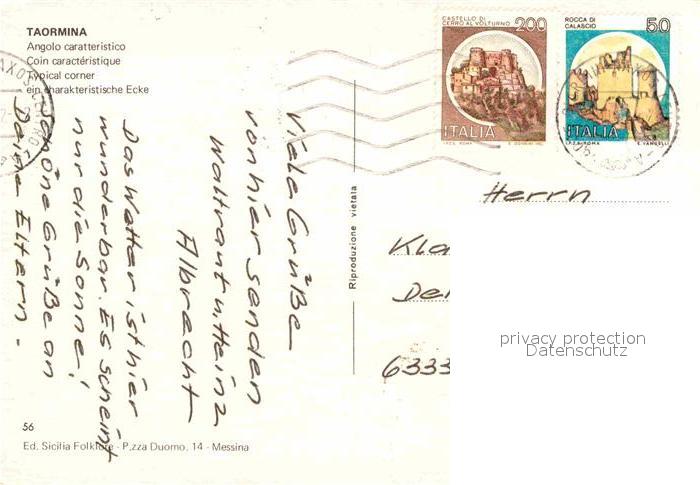 TAORMINA
Angolo caratteristico
Coin caractéristique
Typical corner
ein charakteristische Ecke
CASTELLO DI
CERRO AL VOLTURNO
200
ITALIA
I.P.Z.S. ROMA
ROCCA DI
CALASCIO
50
ITALIA
I.P.Z.S. ROMA
E. VANGELLI
Viele Grüße
von hier senden
Waltraut u. Heinz
Albrecht
Das Wetter ist hier
wunderbar. Es scheint
nur die Sonne!
Schöne Grüße an
Deine Eltern.
Riproduzione vietata
Herrn
Kla
De
6333
privacy protection
Datenschutz
56
Ed. Sicilia Folklore - P.zza Duomo, 14 - Messina